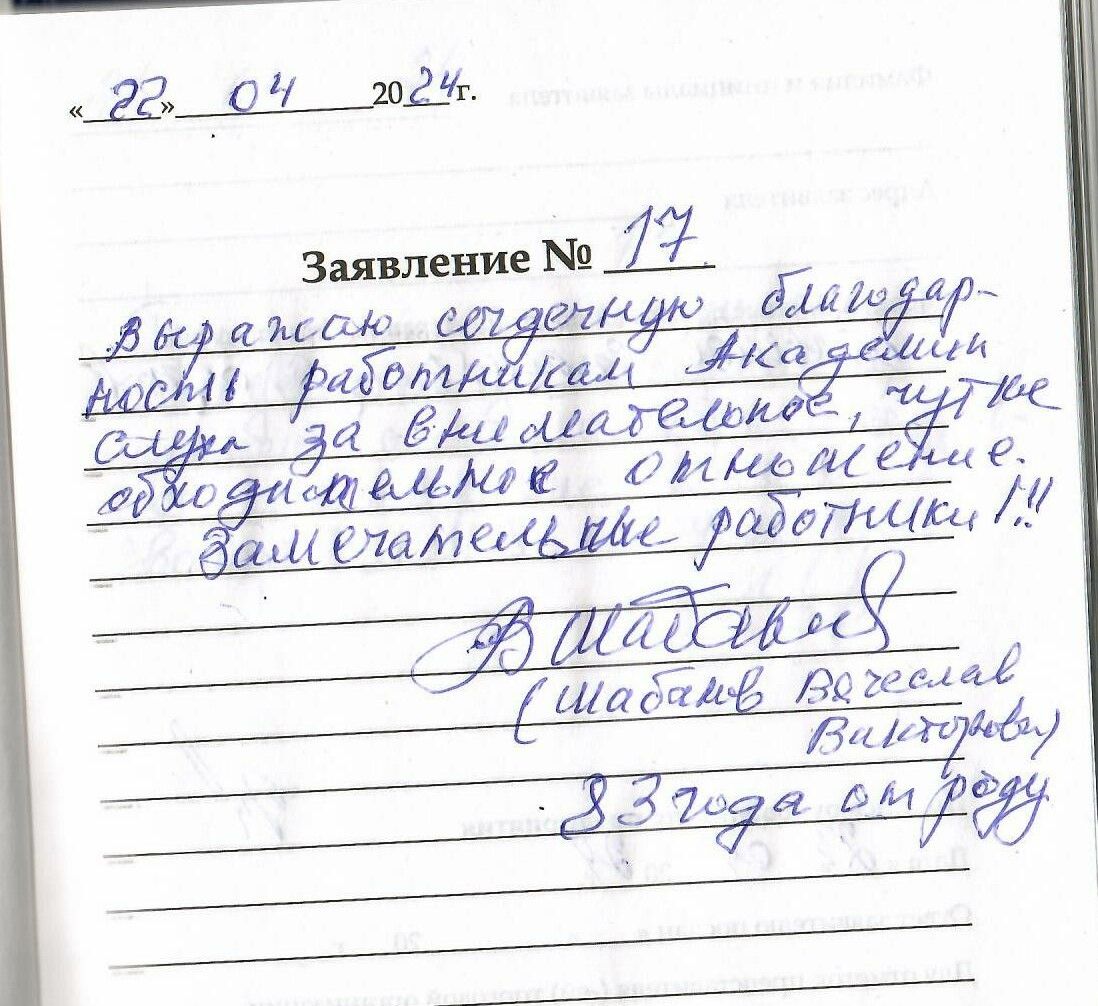 «22» 04 2024г.
Заявление № 17
Выражаю сердечную благодар-
ность работникам Академии
слуха за внимательное, чуткое
обходительное отношение.
Замечательные работники!!!
В Шабанов
(Шабанов Вячеслав
Викторович)
83 года от роду